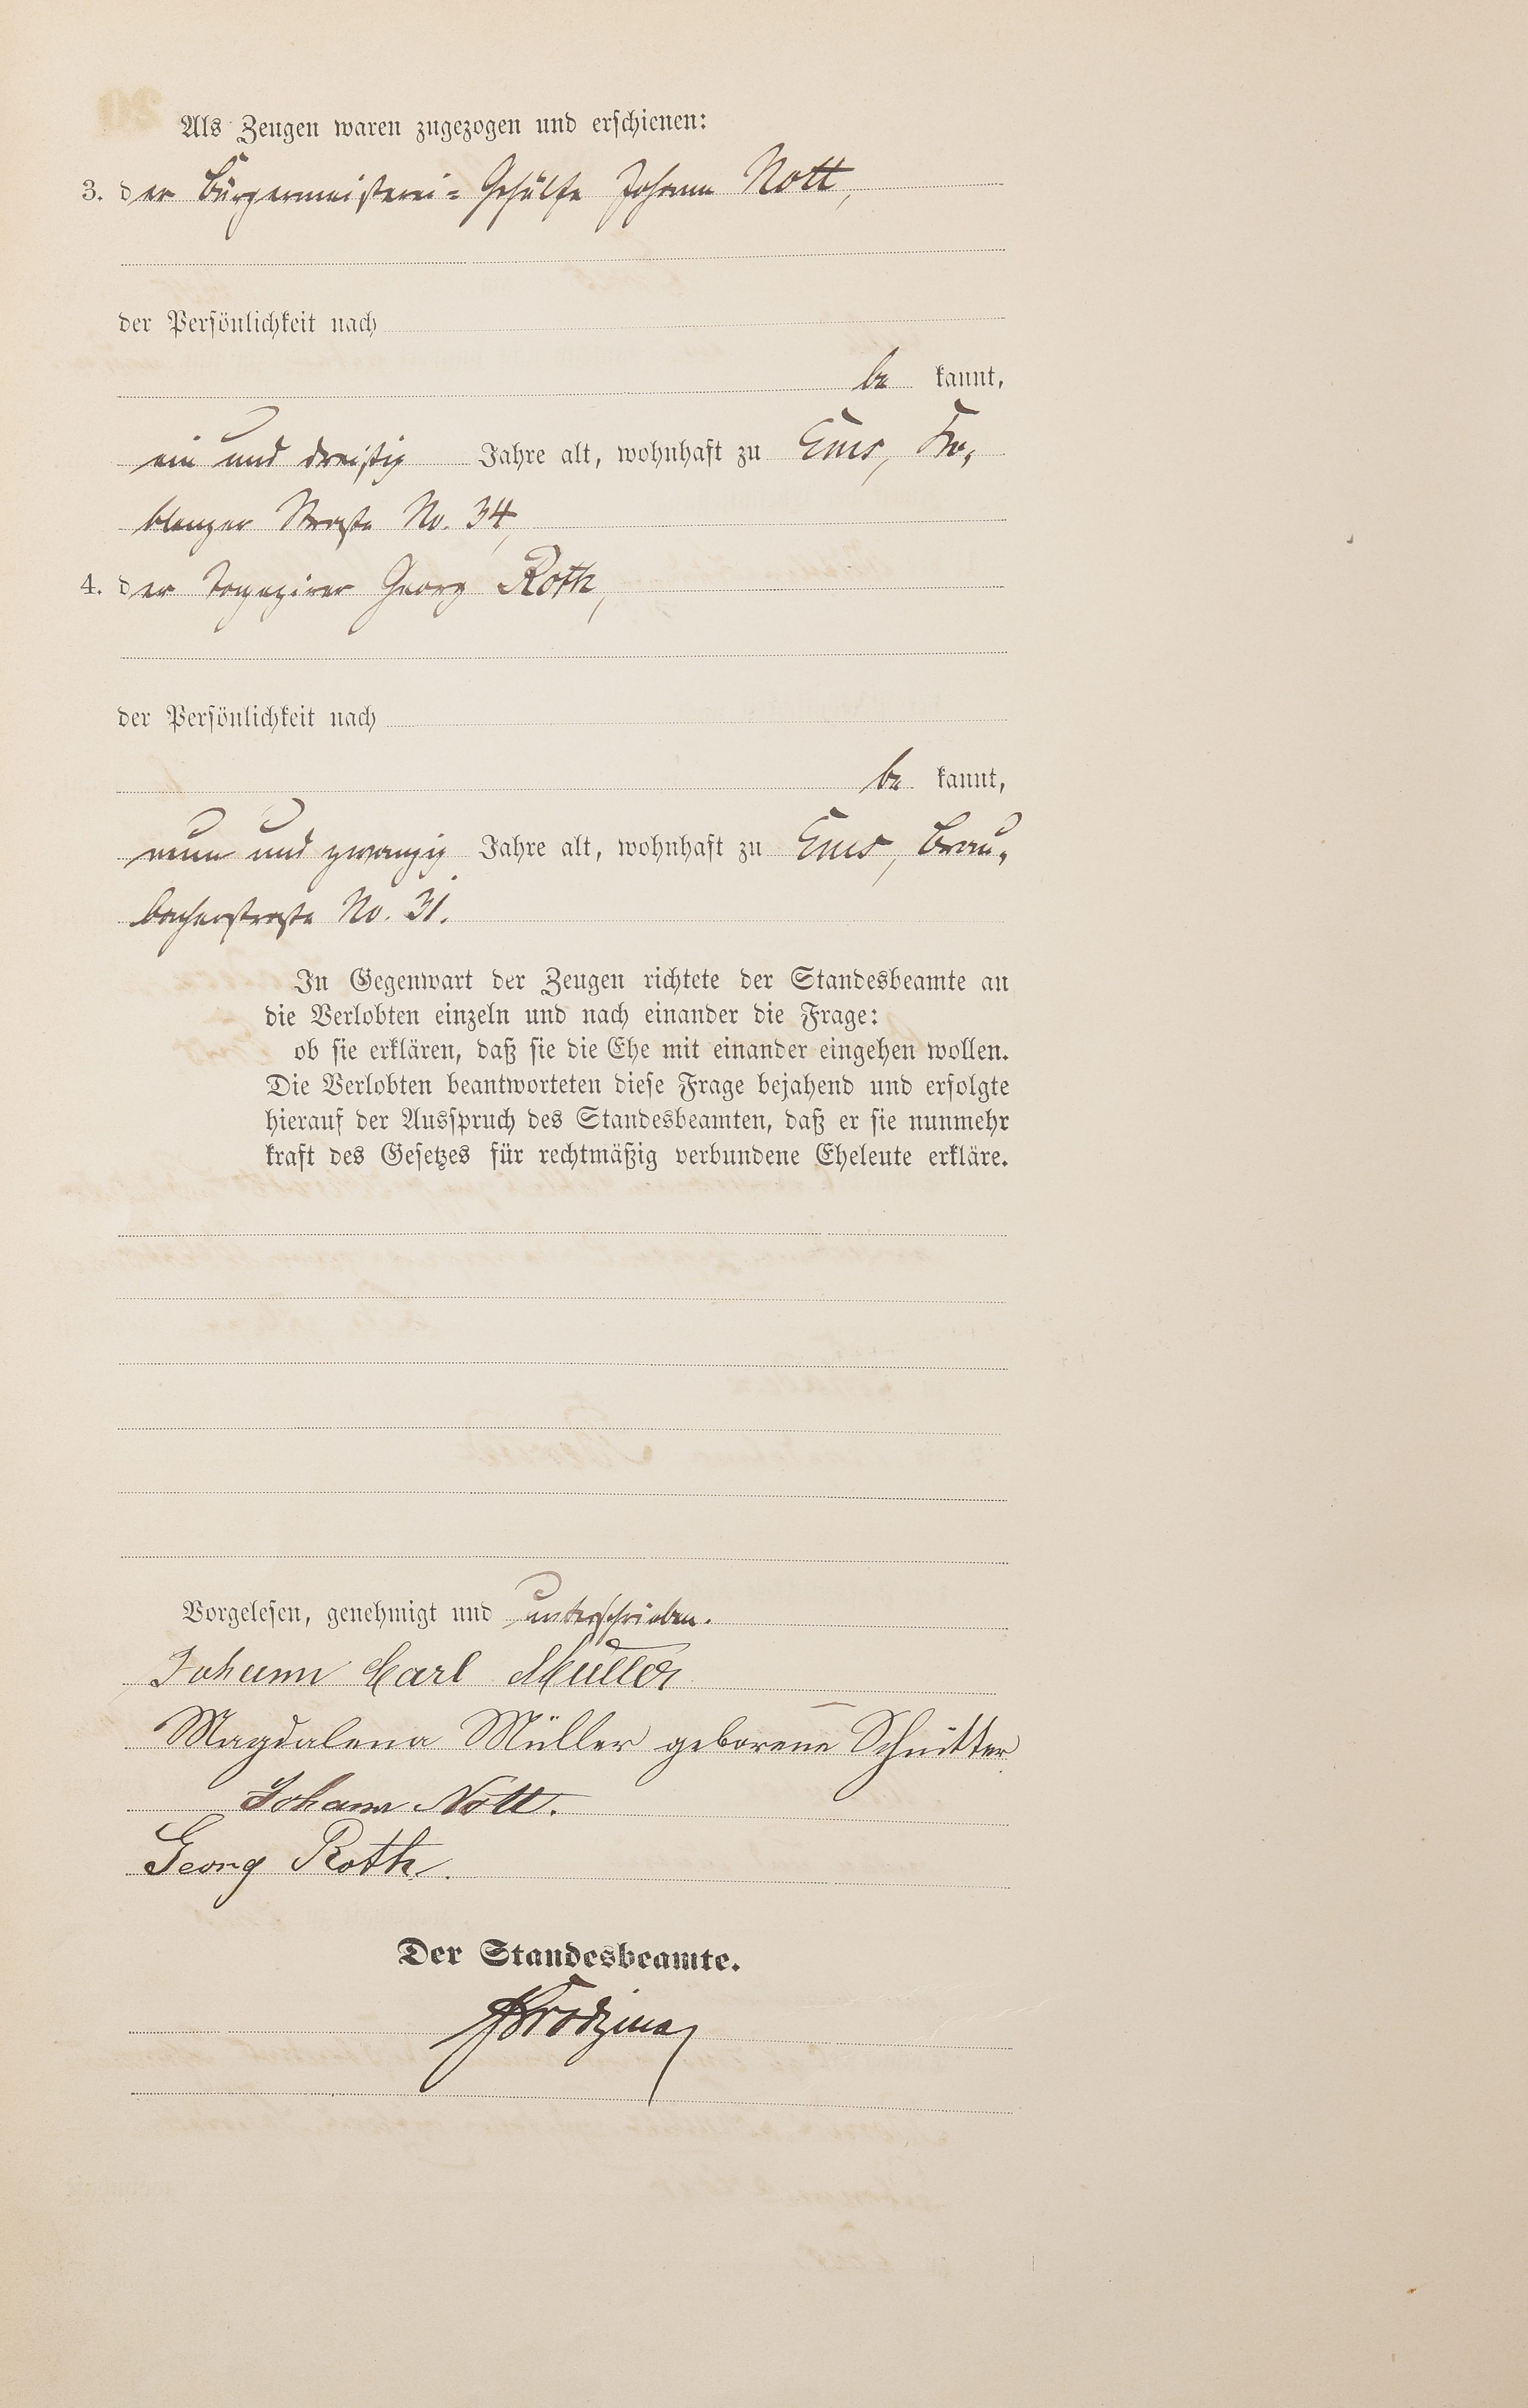 Als Zeugen waren zugezogen und erschienen:
3. der Bürgermeisterei-Gehülfe Johann Nott,
der Persönlichkeit nach
be kannt,
ein und dreißig Jahre alt, wohnhaft zu Ems, Ko-
blenzer Straße No. 34,
4. der Tapezirer Georg Roth,
der Persönlichkeit nach
be kannt,
neun und zwanzig Jahre alt, wohnhaft zu Ems, Brau-
bacherstraße No. 31.
In Gegenwart der Zeugen richtete der Standesbeamte an
die Verlobten einzeln und nach einander die Frage:
ob sie erklären, daß sie die Ehe mit einander eingehen wollen.
Die Verlobten beantworteten diese Frage bejahend und erfolgte
hierauf der Ausspruch des Standesbeamten, daß er sie nunmehr
kraft des Gesetzes für rechtmäßig verbundene Eheleute erkläre.
Vorgelesen, genehmigt und unterschrieben.
Johann Carl Müller
Magdalena Müller geborene Schnitter
Johann Nott.
Georg Roth.
Der Standesbeamte.